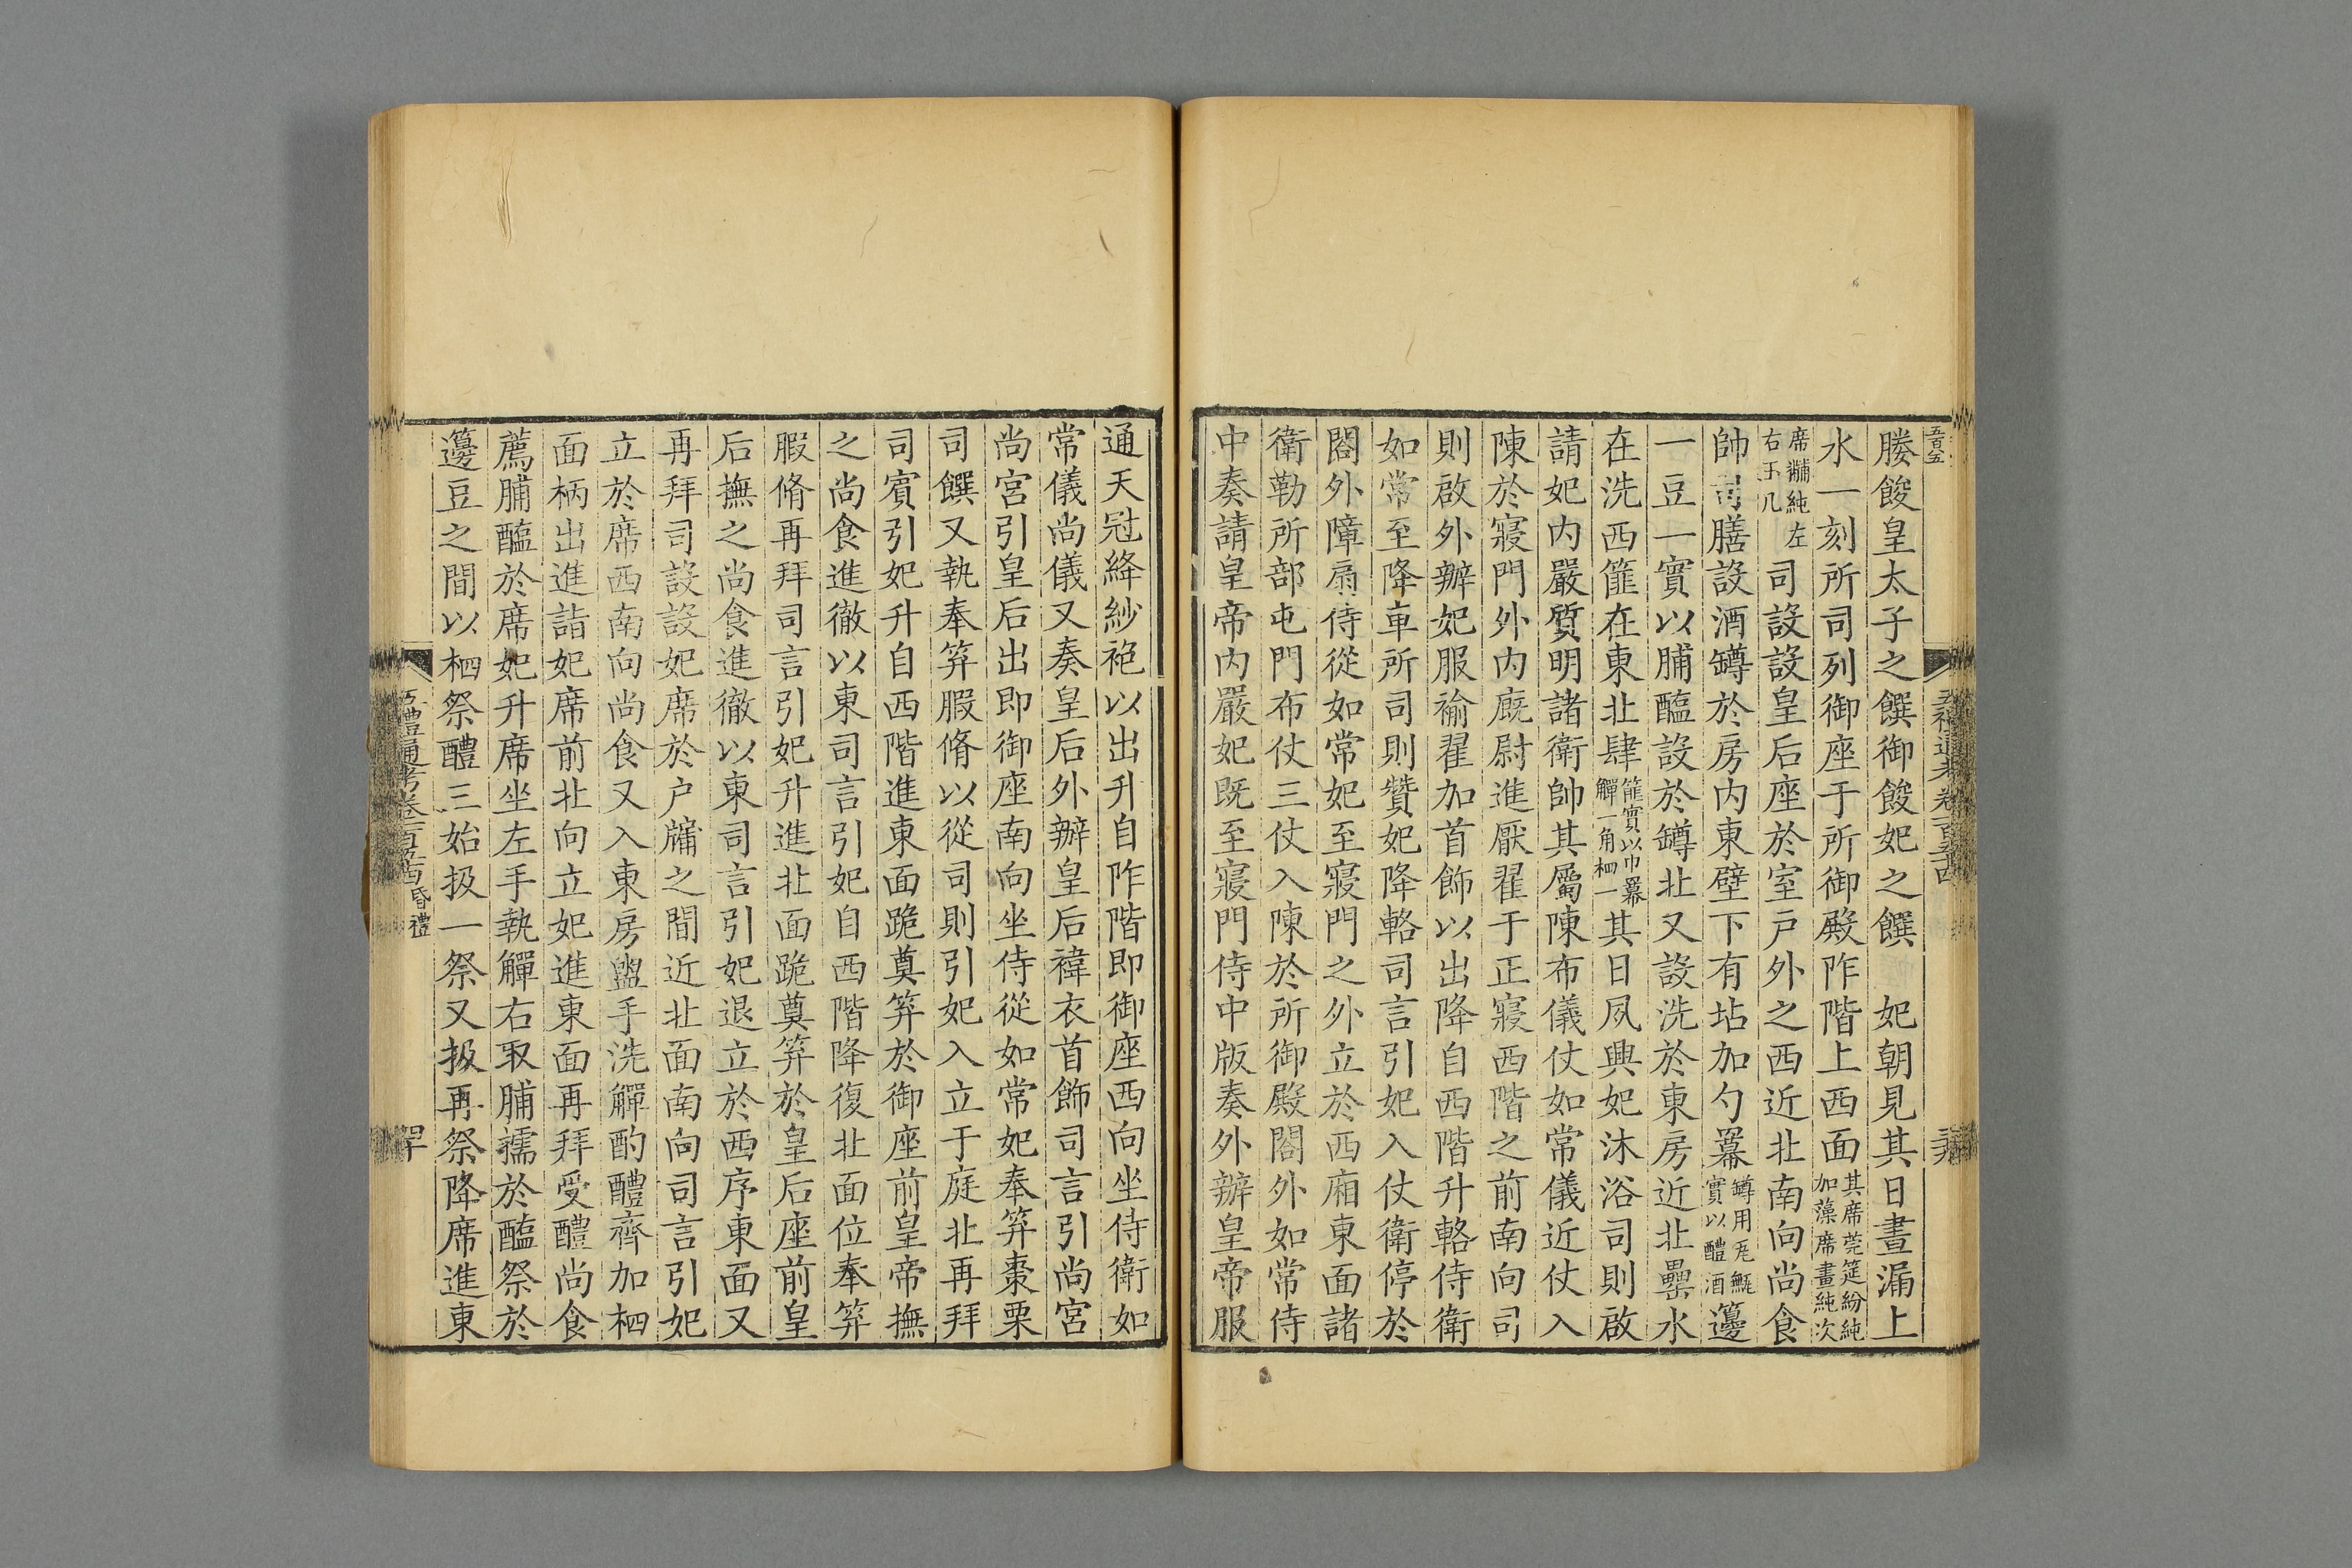 媵餕皇太子之饌御餕妃之饌　妃朝見其日晝漏上
水一刻所司列御座于所御殿阼階上西面其席莞筵紛純加藻席畫純次
席黼純左右玉几司設設皇后座於室戶外之西近北南向尚食
帥司膳設酒罇於房內東壁下有坫加勺冪罇用瓦甒實以醴酒籩
一豆一實以脯醢設於罇北又設洗於東房近北罍水
在洗西篚在東北肆篚實以巾冪觶一角柶一其日夙興妃沐浴司則啟
請妃內嚴質明諸衛帥其屬陳布儀仗如常儀近仗入
陳於寢門外內廐尉進厭翟于正寢西階之前南向司
則啟外辦妃服褕翟加首飾以出降自西階升輅侍衛
如常至降車所司則贊妃降輅司言引妃入仗衛停於
閤外障扇侍從如常妃至寢門之外立於西廂東面諸
衛勒所部屯門布仗三仗入陳於所御殿閤外如常侍
中奏請皇帝內嚴妃既至寢門侍中版奏外辦皇帝服
通天冠絳紗袍以出升自阼階即御座西向坐侍衛如
常儀尚儀又奏皇后外辦皇后褘衣首飾司言引尚宮
尚宮引皇后出即御座南向坐侍從如常妃奉笲棗栗
司饌又執奉笲腶脩以從司則引妃入立于庭北再拜
司賓引妃升自西階進東面跪奠笲於御座前皇帝撫
之尚食進徹以東司言引妃自西階降復北面位奉笲
腶脩再拜司言引妃升進北面跪奠笲於皇后座前皇
后撫之尚食進徹以東司言引妃退立於西序東面又
再拜司設設妃席於户牖之間近北面南向司言引妃
立於席西南向尚食又入東房盥手洗觶酌醴齊加柶
面柄出進詣妃席前北向立妃進東面再拜受醴尚食
薦脯醢於席妃升席坐左手執觶右取脯擩於醢祭於
籩豆之間以柶祭醴三始扱一祭又扱再祭降席進東
五禮通考卷一百五十四 昏禮
四十